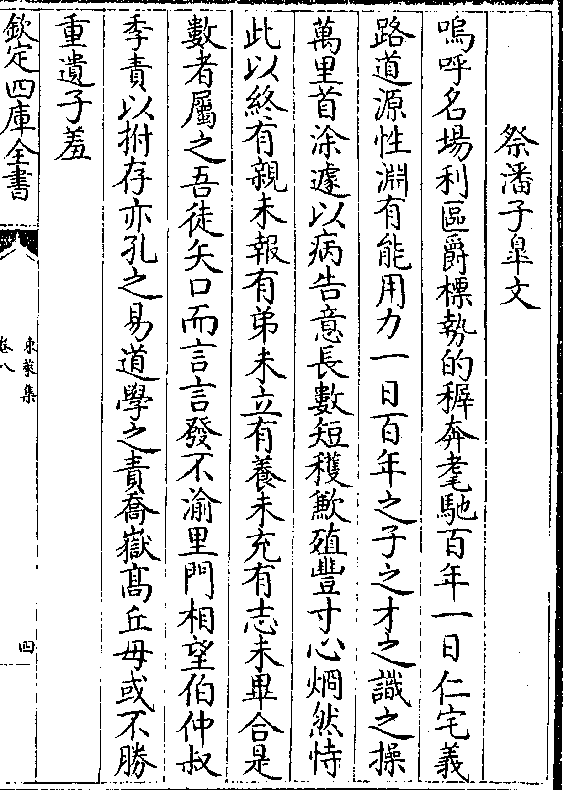 祭潘子臯文
嗚呼名場利區爵標勢的穉奔耄馳百年一日仁宅義
路道源性淵有能用力一日百年之子之才之識之操
萬里首涂遽以病告意長數短穫歉殖豐寸心烱然恃
此以終有親未報有弟未立有養未充有志未畢合是
數者屬之吾徒矢口而言言發不渝里門相望伯仲叔
季責以拊存亦孔之易道學之責喬嶽髙丘毋或不勝
重遺子羞
欽定四庫全書
東萊集
卷八
四